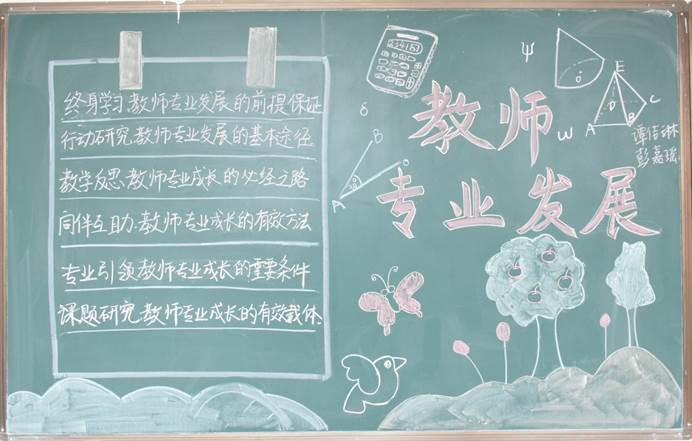 终身学习.教师专业发展的前提保证
行动研究.教师专业发展的基本途径
教学反思.教师专业成长的必经之路
同伴互助.教师专业成长的有效方法
专业引领教师专业成长的重要条件
课题研究.教师专业成长的有效载体
教师
专业发展
ψ
δ
ω
B
A
E
D
A
B
C
彭嘉瑶